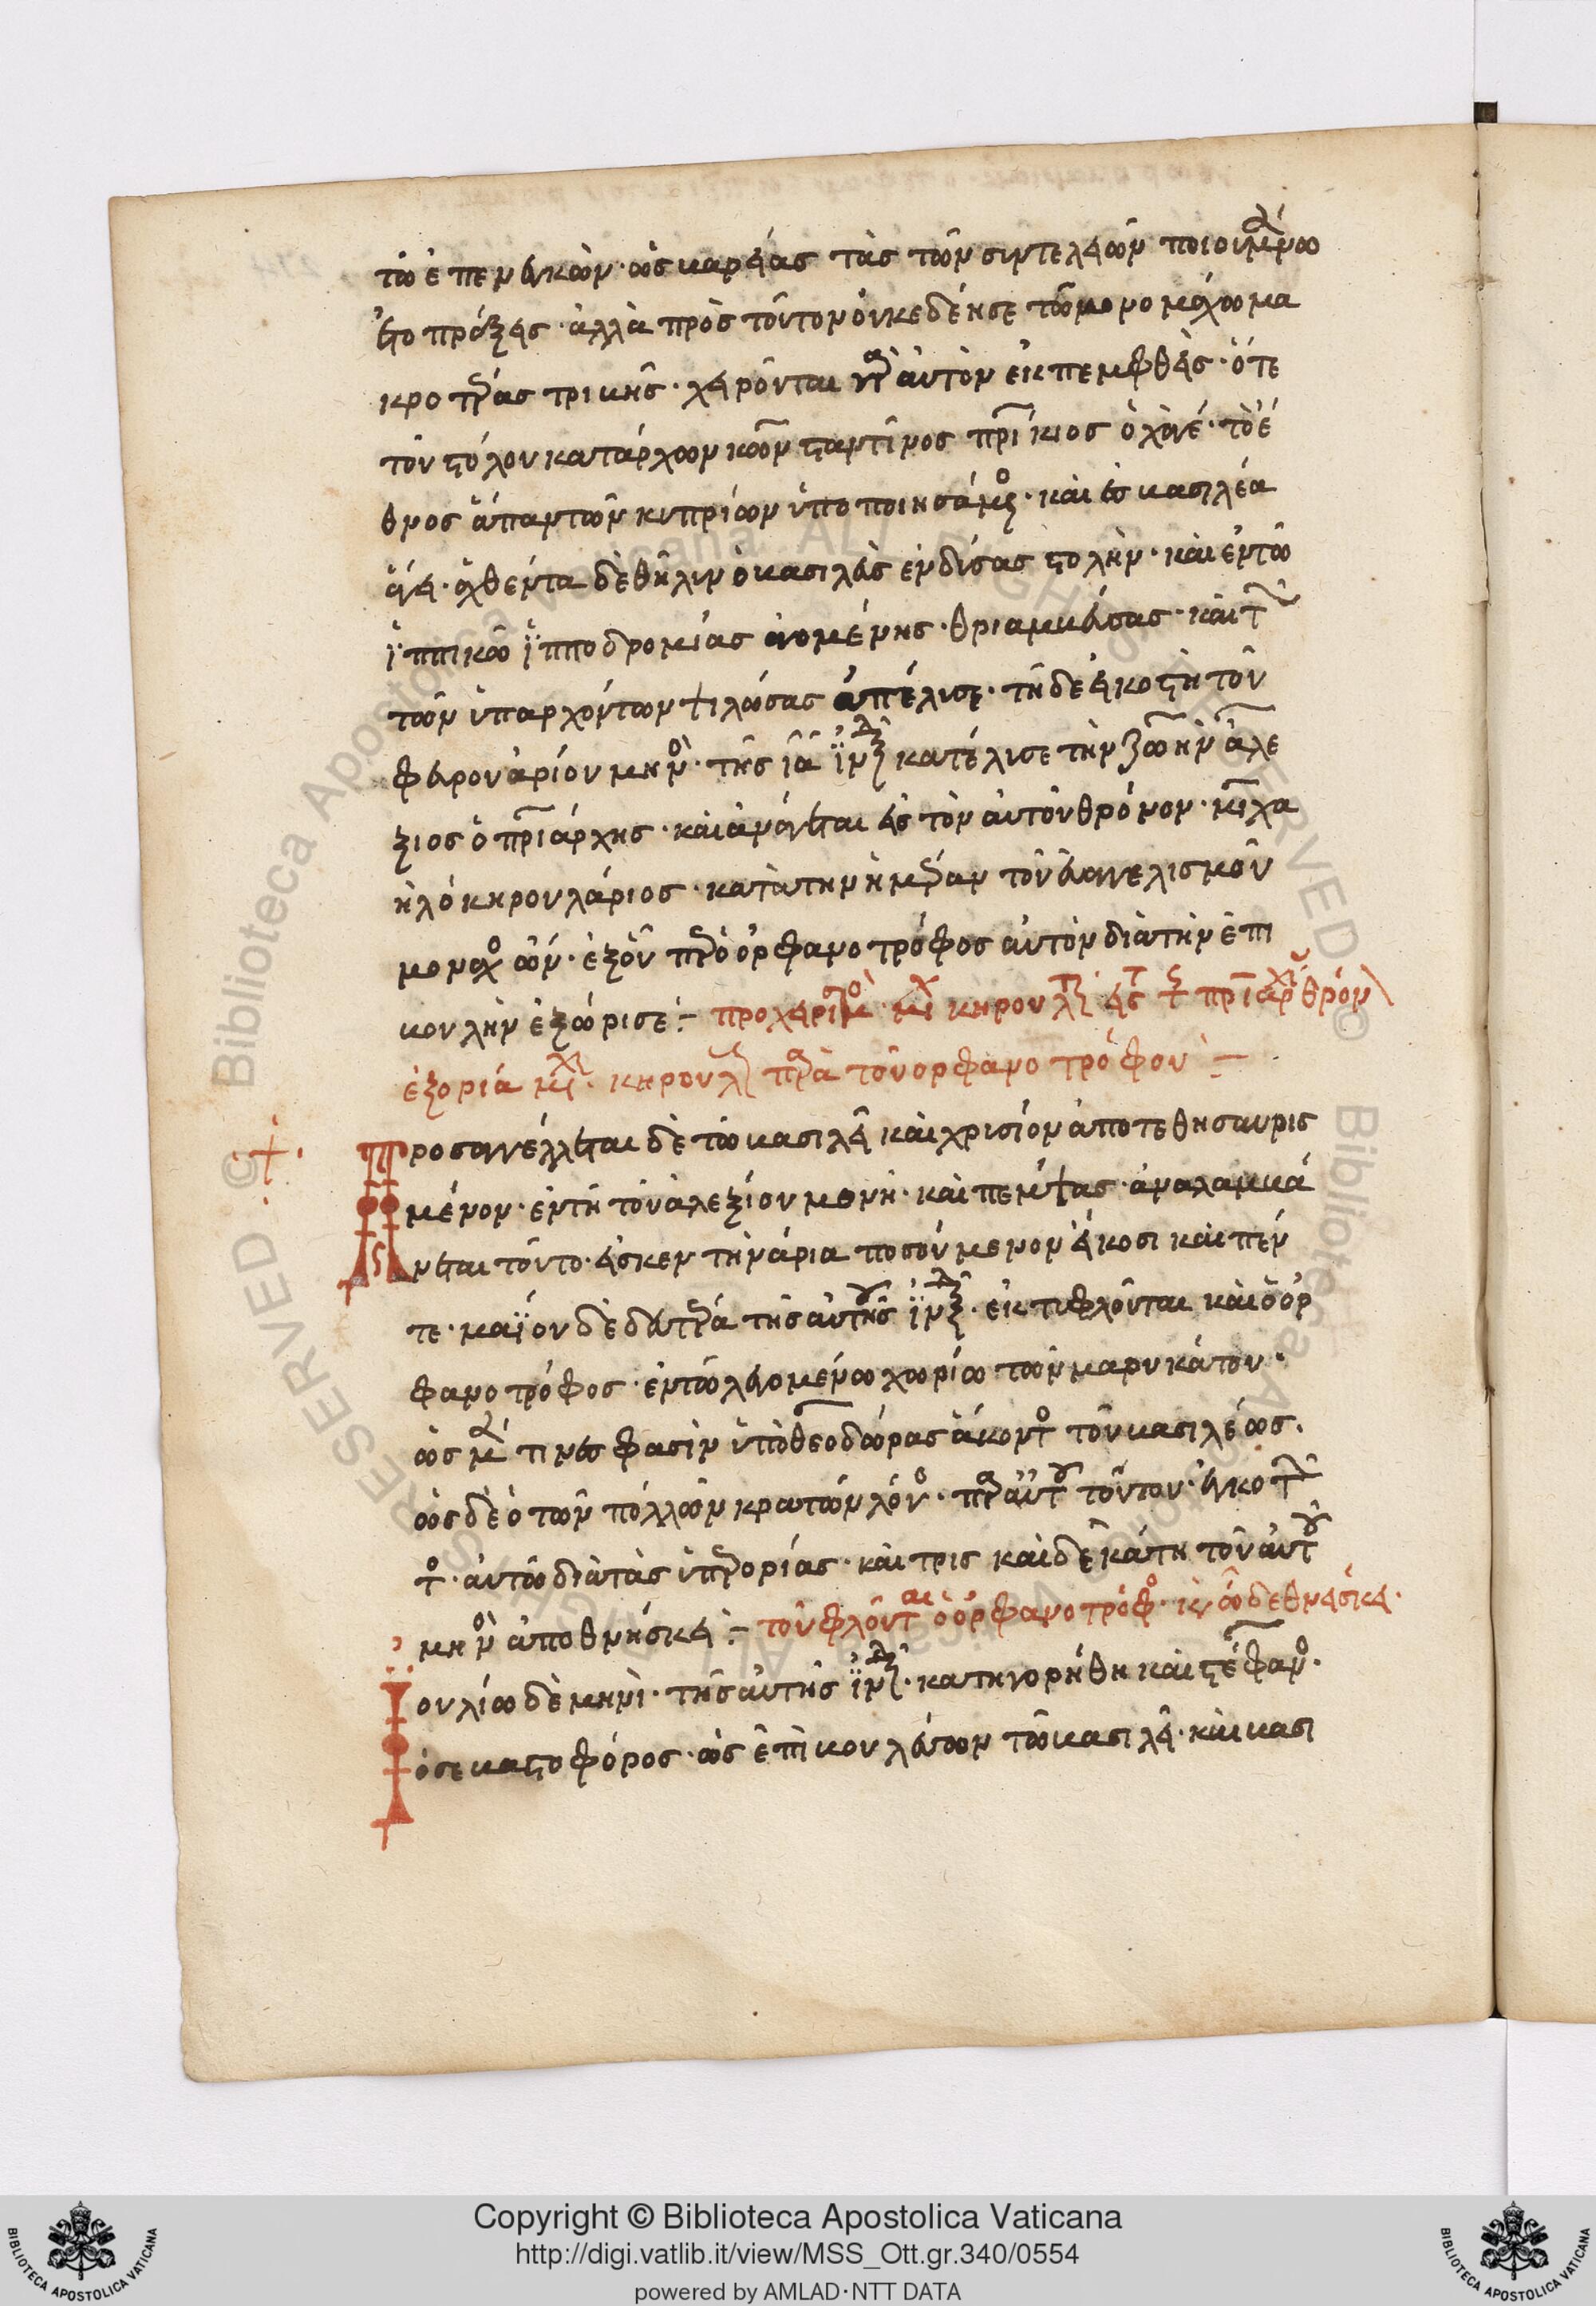 τῶ ἐπενεγκὼν· ὡς βαρείας τὰς τῶν συντελειῶν ποιουμένω
εἰσπράξεις· ἀλλὰ πρὸς τοῦτον οὐκ ἐδέησε τῶ μονομάχω μα
κροτέρας τριβῆς· χειροῦται γὰρ αὐτὸν ἐκπεμφθεὶς· ὅτε
τοῦ στόλου κατάρχων κωνσταντῖνος πατρίκιος ὁ χαγέ· τὸ ἔ
θνος ἅπαν τῶν κυπρίων ὑποποιησάμενος· καὶ εἰς βασιλέα
ἄγει· ἀχθέντα δὲ θῆλυν ὁ βασιλεὺς ἐνδύσας στολὴν· καὶ ἐν τῶ
ἱππικῶ ἱπποδρομίας ἀγομένης· θριαμβεύσας· καὶ τῶν
τῶν ὑπαρχόντων ψιλώσας ἀπέλυσε· τῆ δὲ εἰκοστῆ τοῦ
φευρουαρίου μηνὸς· τῆς ια ἰνδ κατέλυσε τὴν ζωὴν ἀλέ
ξιος ὁ πατριάρχης· καὶ ἀνάγεται εἰς τὸν αὐτοῦ θρόνον· μιχα
ὴλ ὁ κηρουλάριος· κατὰ τὴν ἡμέραν τοῦ εὐαγγελισμοῦ
μοναχὸς ὤν· ἐξ οὗ περ ὁ ὀρφανοτρόφος αὐτὸν διὰ τὴν ἐπι
βουλὴν ἐξώρισε:–
ἐξορία μιχ. κηρουλ παρὰ τοῦ ορφανοτρόφου:–
Προσαγγέλλεται δὲ τῶ βασιλεῖ καὶ χρυσίον ἀποτεθησαυρισ
μένον· ἐν τῆ τοῦ ἀλεξίου μονῆ· καὶ πέμψας· ἀναλαμβά
νεται τοῦτο· εἰς κεντηνάρια ποσούμενον εἴκοσι καὶ πέν
τε· μαΐου δὲ δευτέρα τῆς αὐτῆς ἰνδ· ἐκτυφλοῦται καὶ ὁ ὀρ
φανοτρόφος· ἐν τῶ λεγομένω χωρίω τῶν μαρυκάτου·
ὡς μέν τινες φασὶν ὑπὸ θεοδώρας ἄκοντος τοῦ βασιλέως·
ὡς δὲ ὁ τῶν πολλῶν κρατῶν λόγος· παρ αὐτοῦ τούτου· ἐγκοτ
τος· αὐτῶ διὰ τὰς ὑπερορίας· καὶ τρισκαιδεκάτη τοῦ αὐτοῦ
μηνὸς ἀποθνήσκει:–
Ἰουλίω δὲ μηνὶ· τῆς αὐτῆς ἰνδ· κατηγορήθη καὶ στέφανος·
ὁ σεβαστοφόρος· ὡς ἐπιβουλεύων τῶ βασιλεῖ· καὶ βασι
Copyright © Biblioteca Apostolica Vaticana
http://digi.vatlib.it/view/MSS_Ott.gr.340/0554
powered by AMLAD·NTT DATA